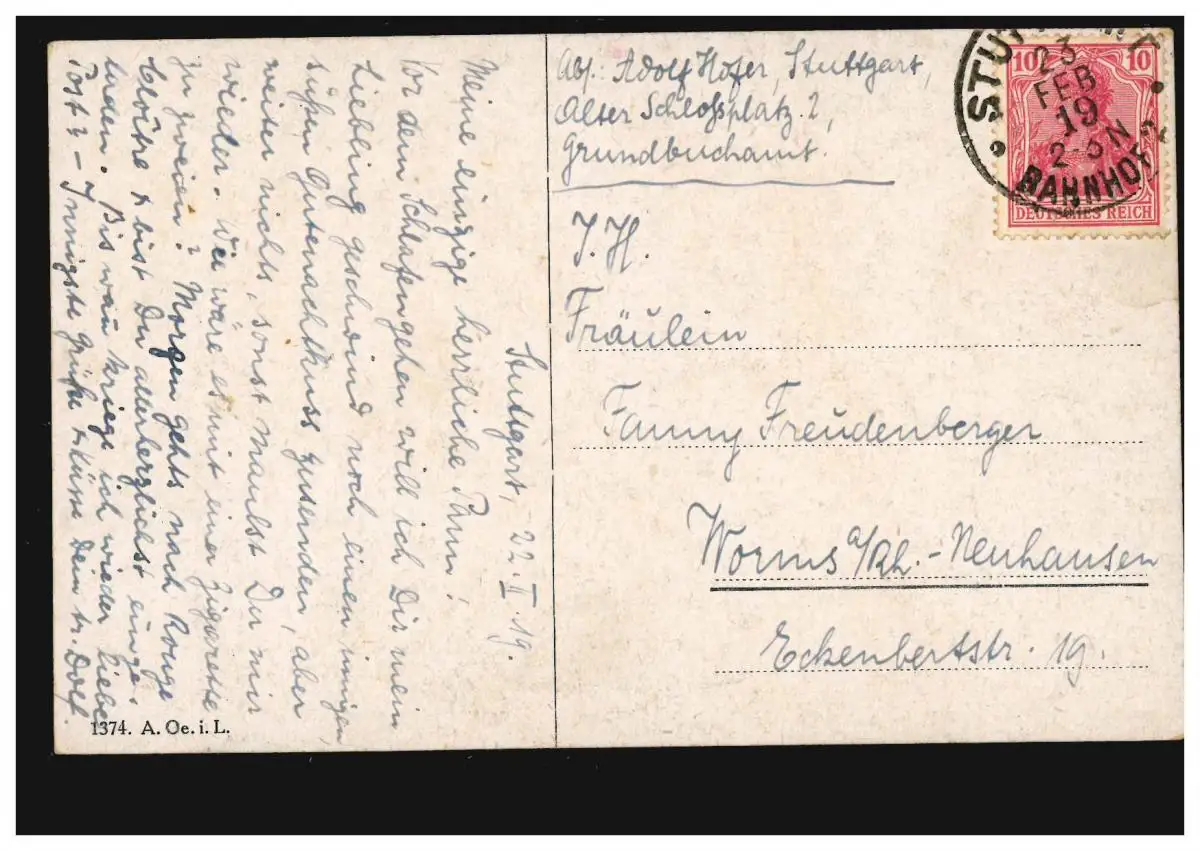 Stuttgart, 22. II. 19.
Meine einzige herrliche Fann!
Vor dem Schlafengehen will ich Dir mein
Liebling geschwind noch einen innigen,
süßen Gutenachtkuss zusenden, aber
weiter nichts, sonst maulst Du mir
wieder. Wie wäre es mit einer Zigarette
zu zweien? Morgen gehts nach
& bist Du allerherzlichst einge-
laden. Bis wan kriege ich wieder liebe
Post? – Innigste Grüße & Küsse Dein tr. Dolf.
1374. A. Oe. i. L.
Abs: Adolf Hofer, Stuttgart,
Alter Schloßplatz. 2,
Grundbuchamt.
I. H.
Fräulein
Fanny Freudenberger
Worms a/Rh.-Neuhausen
Eckenbertstr. 19.
10 10
DEUTSCHES REICH
23
FEB
19
2-3 N
BAHNHOF